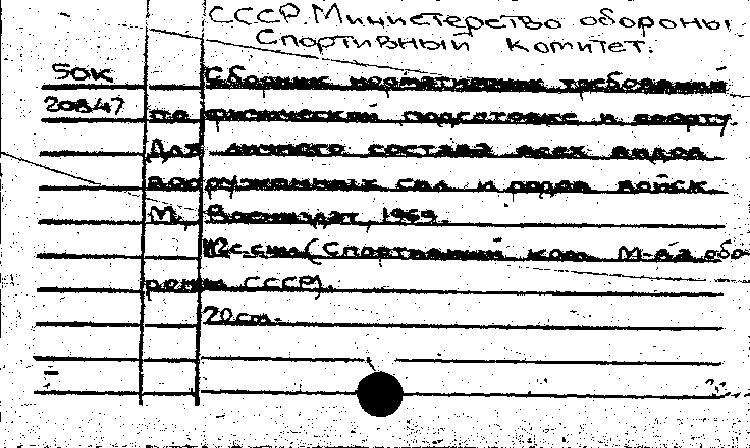 СССР. Министерство обороны.
Спортивный комитет.
50к Сборник нормативных требований
20847 по физической подготовке и спорту.
Для личного состава всех видов
вооруженных сил и родов войск.
М., Воениздат, 1969.
112с.с илл. (Спортивный ком. М-ва обо-
роны СССР).
20 cm.